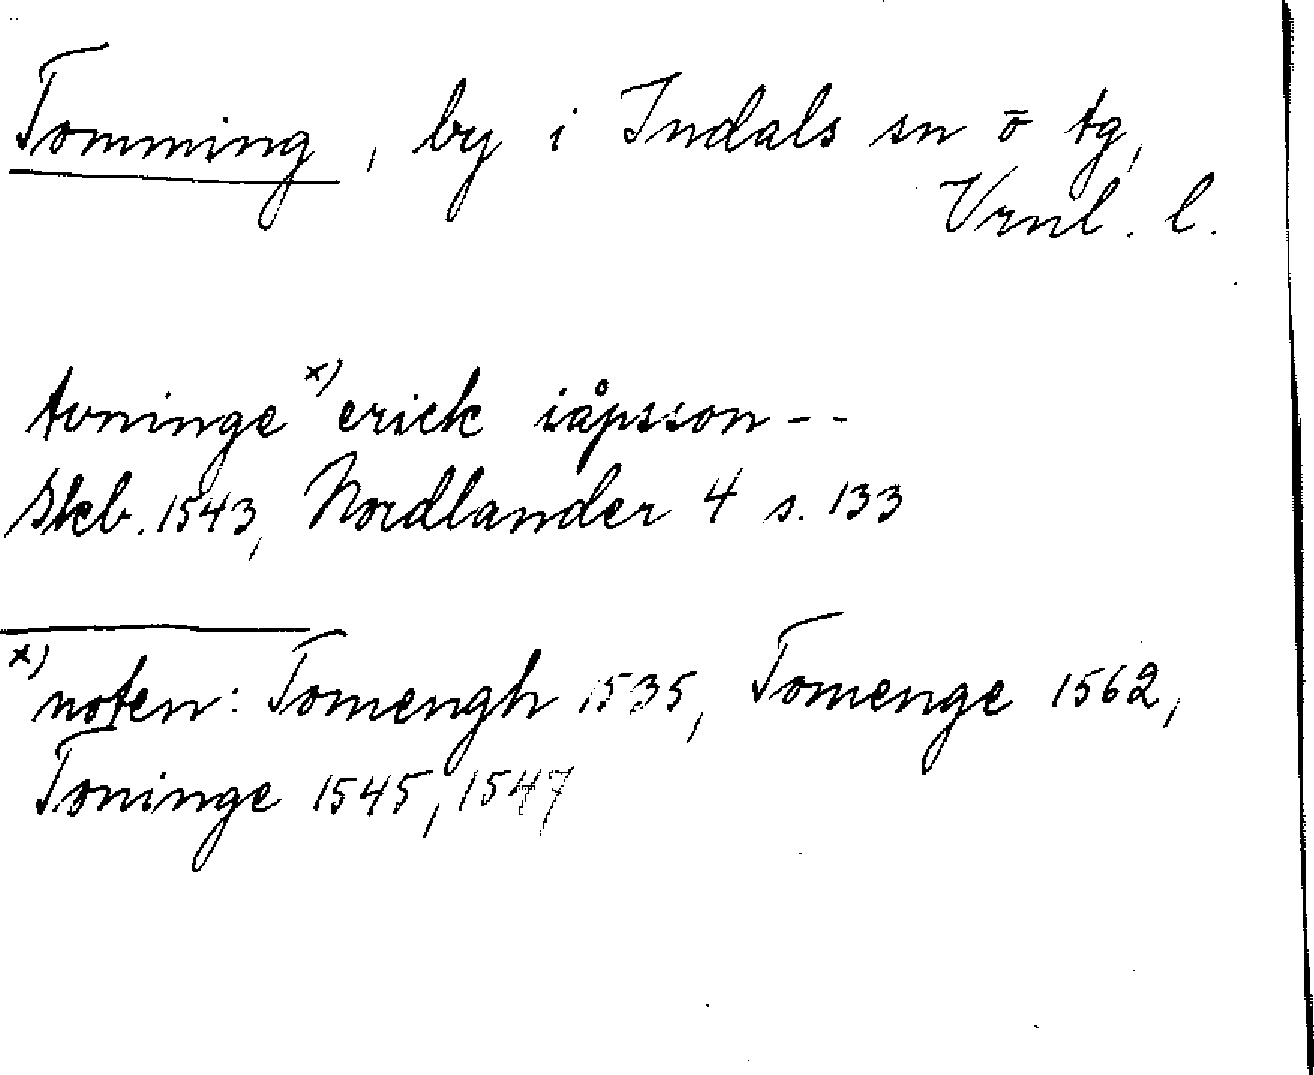 Tomming, by i Indals sn o tg,
Vrnl. l.
tvninge x) erick iåpsson - -
Skb. 1543, Nordlander 4 s. 133
x) noten: Tomengh 1535, Tomenge 1562,
Toninge 1545, 1547